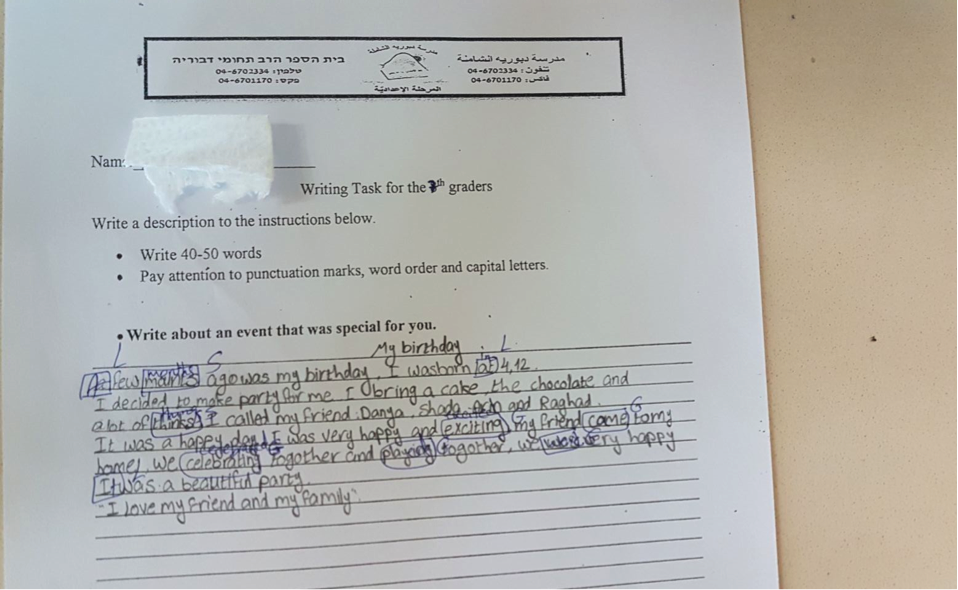 בית הספר הרב תחומי דבוריה
טלפון: 04-6702334
פקס: 04-6701170
مدرسة دبورية الشاملة
المرحلة الإعدادية
مدرسة دبوريه الشاملة
تلفون: 04-6702334
فاكس: 04-6701170
Nam
Writing Task for the 7th graders
Write a description to the instructions below.
• Write 40-50 words
• Pay attention to punctuation marks, word order and capital letters.
• Write about an event that was special for you.
L S My birthday L
months in
few ago was my birthday. I was born at 4,12.
I decided to make party for me. I bring a cake, the chocolate and
things
a lot of thinks. I called my friend. Danya, Shada, and Raghad.
excited G
It was a happy day! I was very happy and exciting, my friend came to my
celebrated G
home, we celebrating togother and playing togother, we was very happy
It was a beautiful party.
"I love my friend and my family".